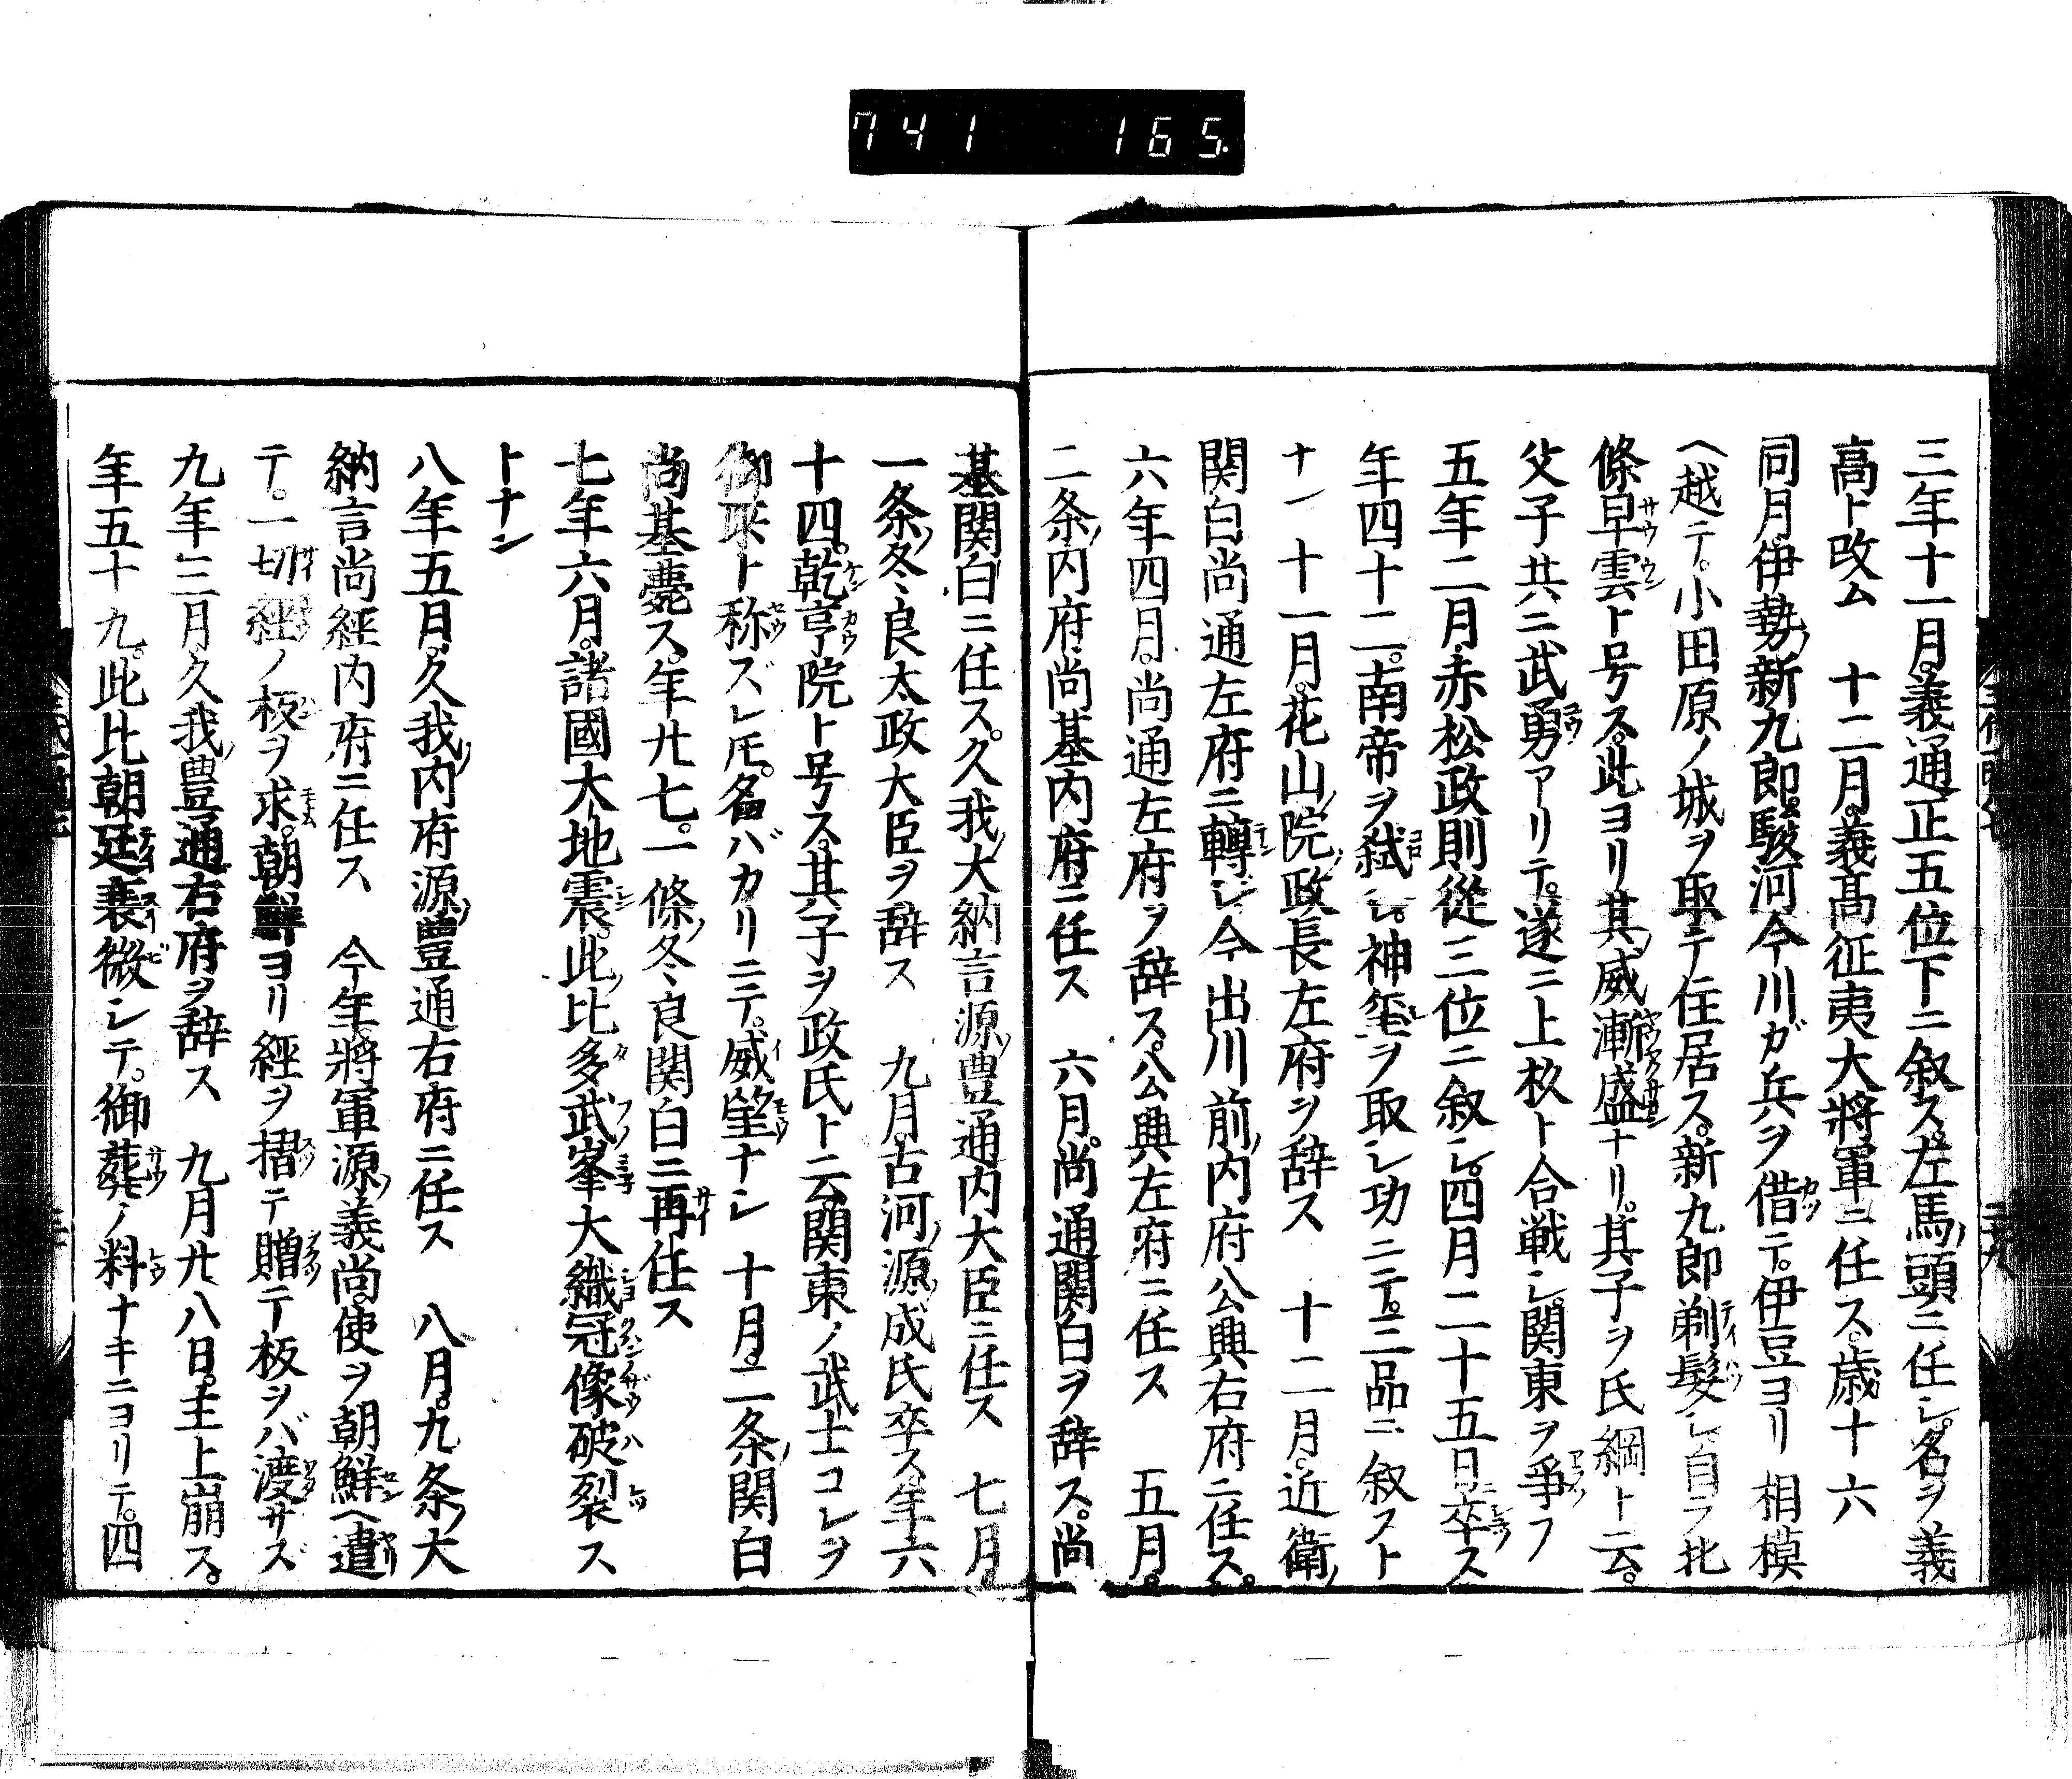 741 165.
三年十一月。義通正五位下ニ叙ス。左馬ノ頭ニ任シ。名ヲ義
高ト改ム　十二月。義高征夷大將軍ニ任ス。歳十六
同月。伊勢ノ新九郎。駿河今川ガ兵ヲ借テ。伊豆ヨリ相模
ヘ越テ。小田原ノ城ヲ取テ住居ス。新九郎剃髮シ。自ラ北
條早雲ト号ス。此ヨリ其ノ威漸盛ナリ。其子ヲ氏綱ト云。
父子共ニ武勇アリテ。遂ニ上杦ト合戦シ。関東ヲ爭フ
五年二月。赤松政則從三位ニ叙シ。四月二十五日卒ス
年四十二。南帝ヲ弑シ。神璽ヲ取シ功ニテ。三品ニ叙スト
ナ丶　十一月。花山ノ院ノ政長左府ヲ辞ス　十二月。近衛ノ
関白尚通左府ニ轉シ。今出川前ノ内府公興右府ニ任ス。
六年四月。尚通左府ヲ辞ス。公興左府ニ任ス　五月。
二条ノ内府尚基内府ニ任ス　六月。尚通関白ヲ辞ス。尚
基関白ニ任ス。久我ノ大納言源ノ豊通内大臣ニ任ス　七月。
一条ノ冬良太政大臣ヲ辞ス　九月。古河ノ源ノ成氏卒ス。年六
十四。乾亨院ト号ス。其子ヲ政氏ト云。関東ノ武士コレヲ
御所ト称ズレ𪜈。名バカリニテ。威望ナシ　十月。二条ノ関白
尚基薨ス。年廿七。一條ノ冬良関白ニ再任ス
七年六月。諸國大地震。此ノ比多武峯大織冠像破裂ス
トナン
八年五月。久我ノ内府源ノ豊通右府ニ任ス　八月。九条ノ大
納言尚經内府ニ任ス　今年。將軍源ノ義尚。使ヲ朝鮮ヘ遣
テ。一切經ノ板ヲ求。朝鮮ヨリ經ヲ摺テ贈テ板ヲバ渡サズ
九年三月。久我ノ豊通右府ヲ辞ス　九月廿八日。主上崩ス。
年五十九。此比朝廷衰微シテ。御葬ノ料ナキニヨリテ。四